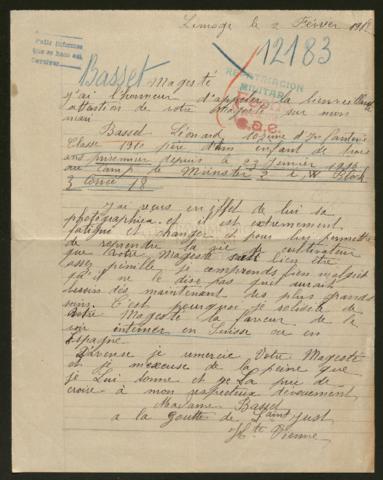 Limoge le 2 Février 191
12183
Basset
Magesté
j'ai l'honneur d'appeler la bienveillante
attention de votre Magesté sur mon
mari
Basset Léonard ieme d'Infanterie
Classe 1910 père d'un enfant de trois
ans prisonnier depuis le 23 Janvier
au camp de Munster 2 i/W Block
3 18
J'ai reçus en effet de lui sa
photographie et il est extremement
fatigué et changer et pour lui permettre
de reprendre la vie de cultivateur
que votre Magesté sait bien être
assez pénible je comprends bien malgré
qu'il ne le dise pas quil aurait
besoin dès maintenant des plus grands
soins C'est pourquoi je solicite de
Votre Magesté la faveur de le
voir interner en Suisse ou en
Espagne
D'avance je remercie Votre Magesté
et je m'excuse de la peine que
je Lui donne et je La prie de
croire à mon respectueux dévouement
Madame Basset
a la goutte de Saint Just
Hte Vienne